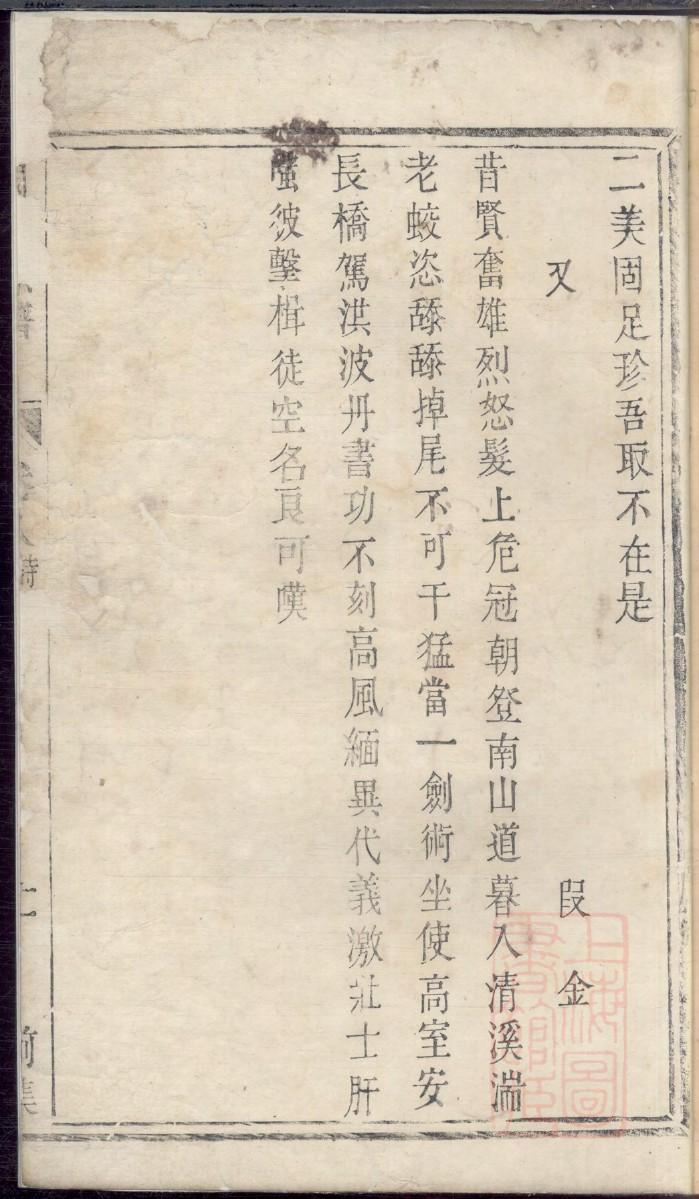 二美固足珍吾取不在是
又 段金
昔賢奮雄烈怒髮上危冠朝登南山道暮入清溪湍
老蛟恣舔舕掉尾不可干猛當一劍術坐使高室安
長橋駕洪波丹書功不刻高風緬異代義激壯士肝
嗤彼擊楫徒空名良可嘆
上海圖書館藏